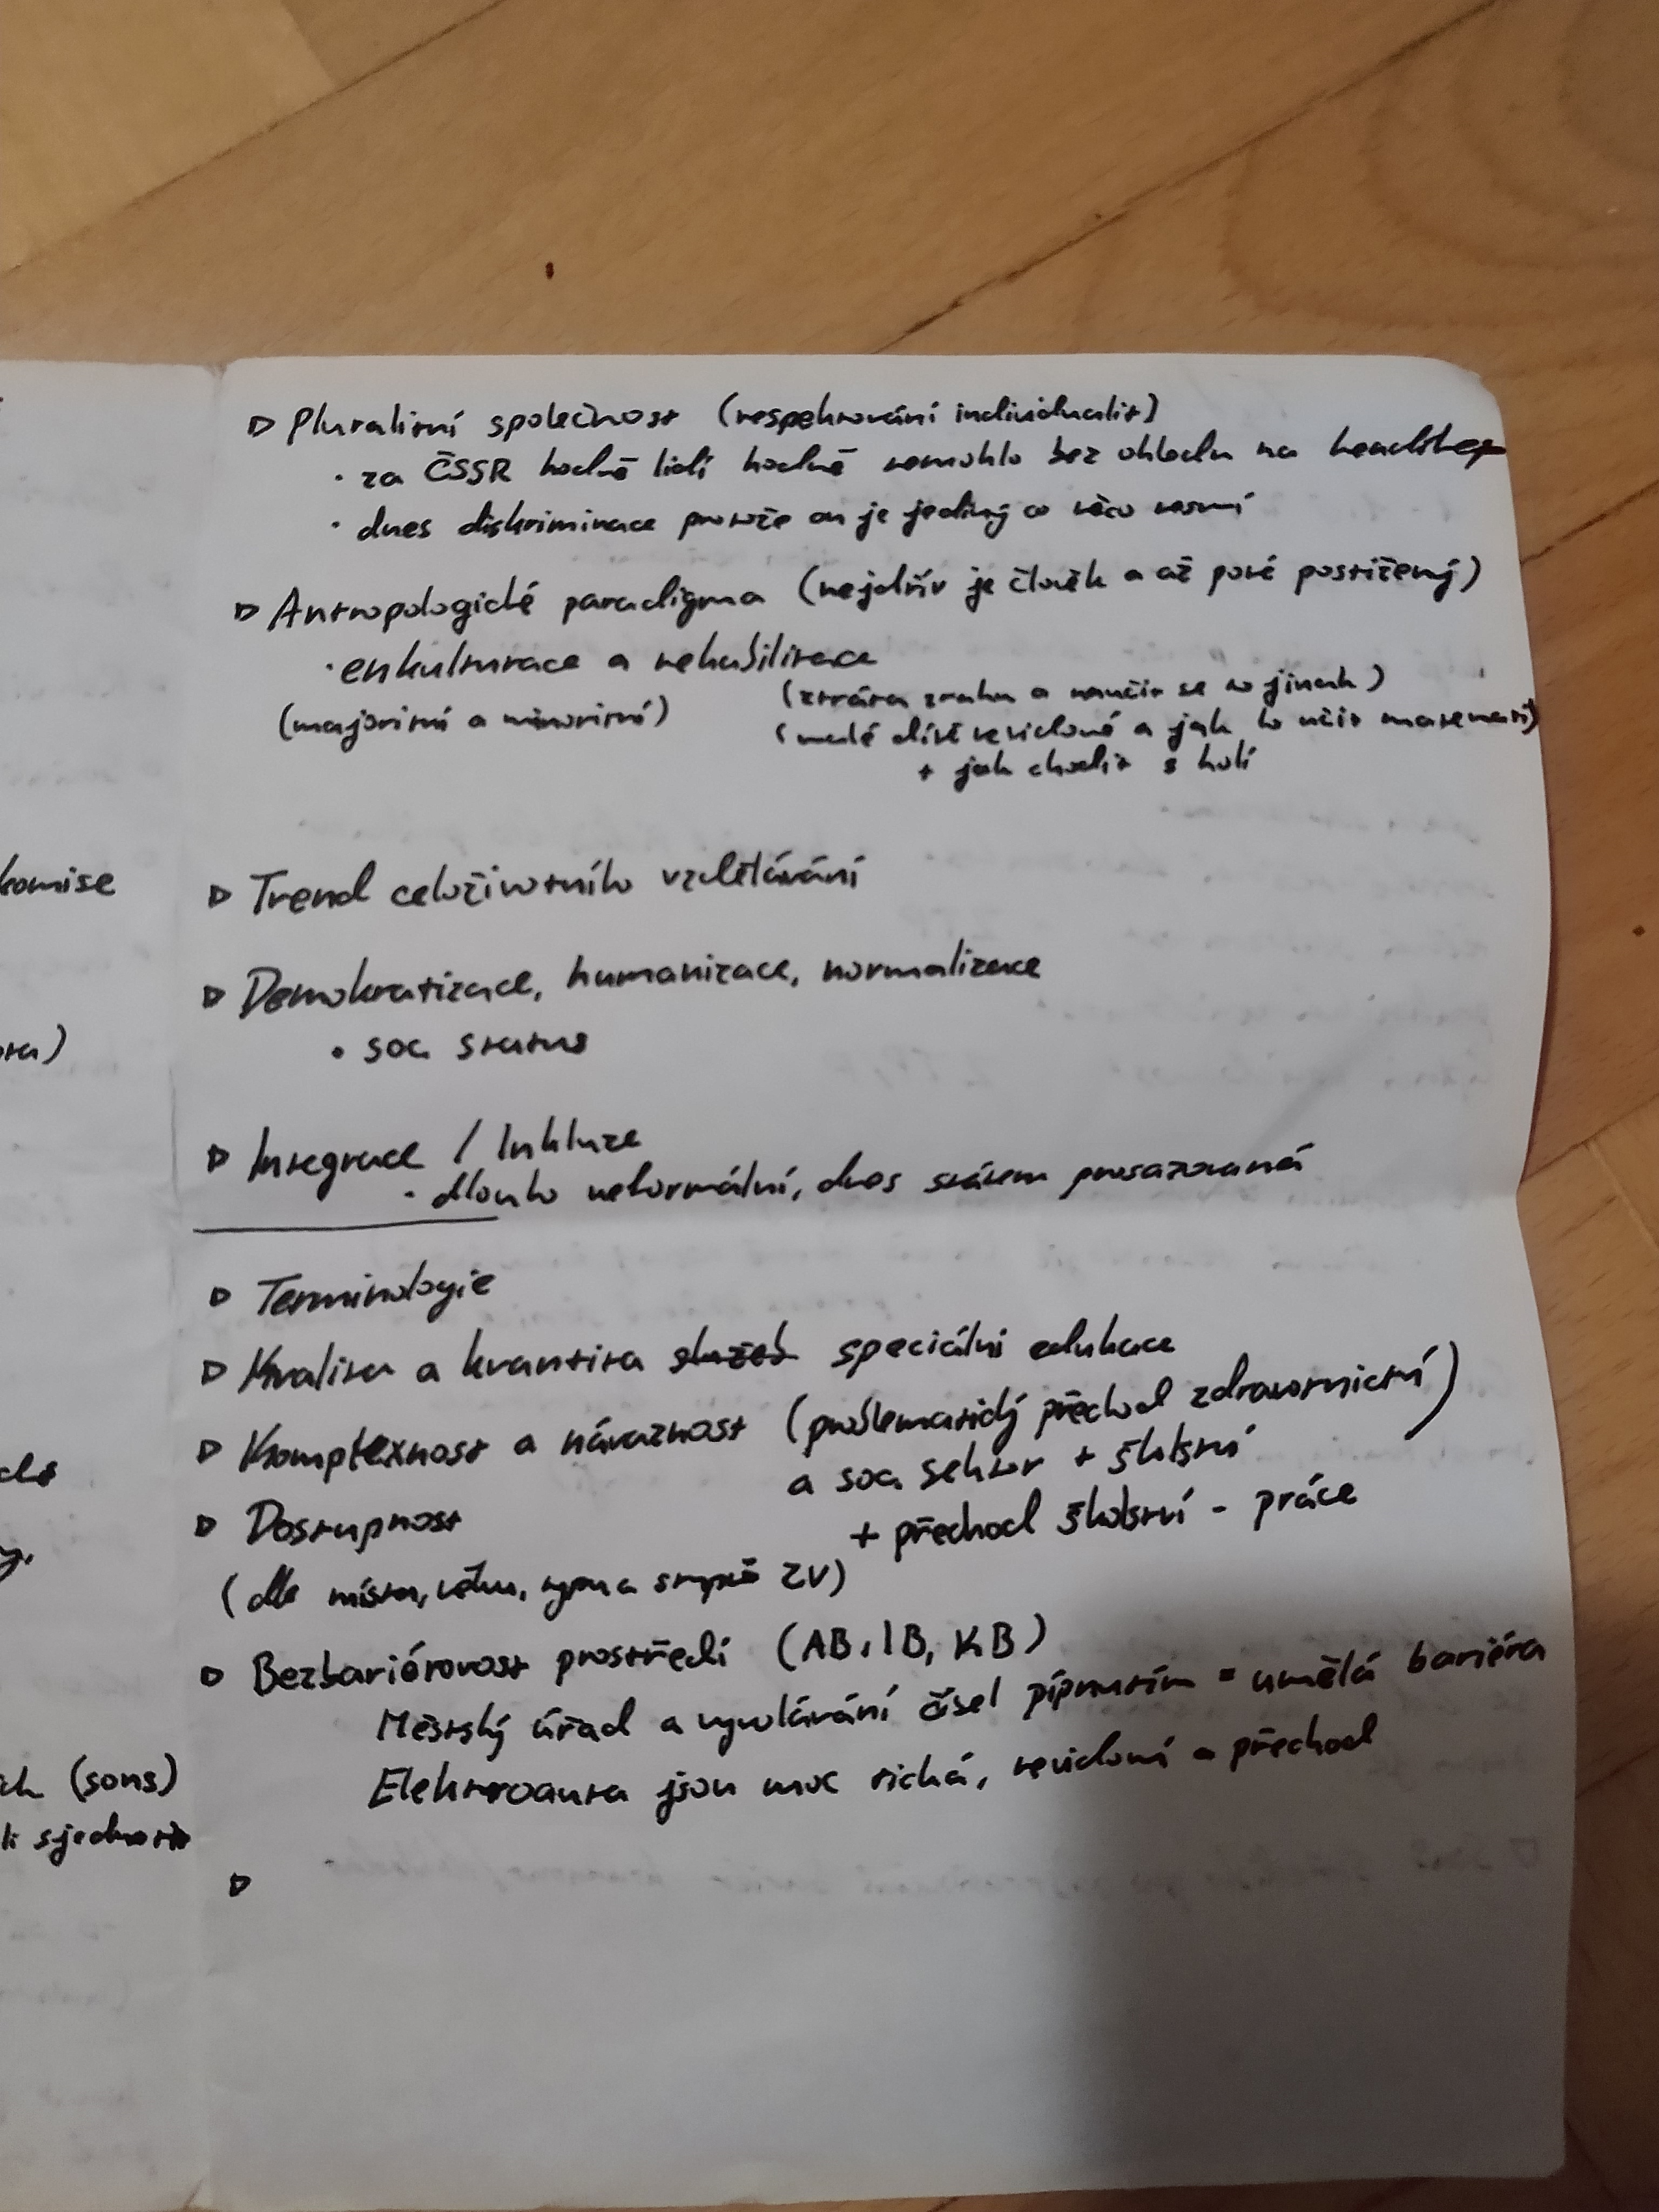 ▷ Pluralitní společnost (respektování individualit)
· za ČSSR hodně lidí hodně nemohlo bez ohledu na handicap
· dnes diskriminace protože on je jediný co něco nesmí
▷ Antropologické paradigma (nejdřív je člověk a až poté postižený)
· enkulturace a rehabilitace
(ztráta zraku a naučit se to jinak)
(majoritní a minoritní)
(malé dítě nevidomé a jak to učit matemati)
+ jak chodit s holí
komise
▷ Trend celoživotního vzdělávání
▷ Demokratizace, humanizace, normalizace
• soc status
▷ Integrace / Inkluze
· dlouho neformální, dnes státem prosazovaná
▷ Terminologie
▷ Kvalita a kvantita služeb speciální edukace
▷ Komplexnost a návaznost (problematický přechod zdravotnictví)
a soc sektor + školství
▷ Dostupnost
+ přechod školství - práce
(dle místa, věku, typu a stupně ZV)
▷ Bezbariérovost prostředí (AB, IB, KB)
Městský úřad a vyvolávání čísel pípnutím = umělá bariéra
Elektroauta jsou moc tichá, nevidomí a přechod
(sons)
sjednotit
▷